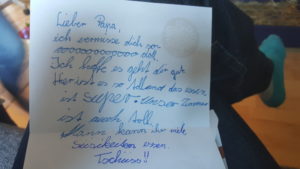 Lieber Papa,
ich vermisse dich von
doll.
Ich hoffe es geht dir gut
Hier ist es so toll und das
ist super. Unser Zimmer
ist auch toll.
Mann kann hir viele
Susikeiten essen.
Tschüss!!